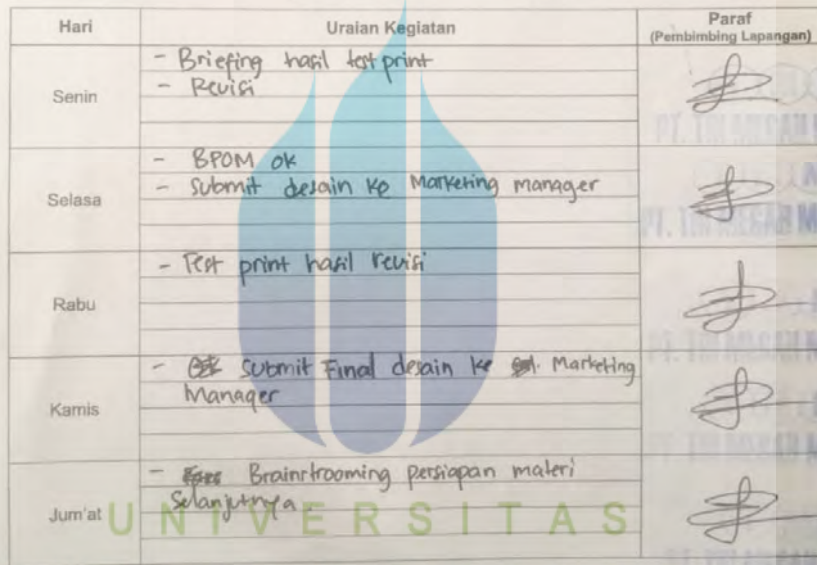 Hari Uraian Kegiatan Paraf
(Pembimbing Lapangan)
- Briefing hasil test print
Senin - Revisi
- BPOM ok
Selasa - Submit desain ke Marketing manager
- Test print hasil revisi
Rabu
- Submit Final desain ke Marketing
Kamis Manager
- Brainstrooming persiapan materi
Jum'at selanjutnya
UNIVERSITAS